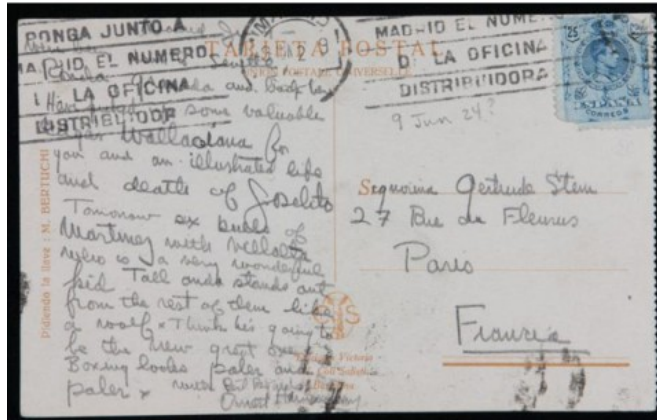 PONGA JUNTO A
MADRID EL NUMERO
LA OFICINA
DISTRIBUIDOR
TARJETA POSTAL
UNION POSTALE UNIVERSELLE
MADRID EL NUME
D LA OFICINA
DISTRIBUIDORA
25
ESPAÑA
CORREOS
9 Jun 24?
Ronda Granada and back
Sevilla
some valuable
Wallaciana for
you and an illustrated life
and death of Joselito
Tomorrow six bulls of
Martinez with Villalta
who is a very wonderful
kid. Tall and stands out
from the rest of them like
a wolf x Think he's going to
be the new great one x
Boxing looks paler and
paler x
Ernest Hemingway
Pidiendo la llave : M. BERTUCHI
Segnorina Gertrude Stein
27 Rue de Fleurus
Paris
Francia